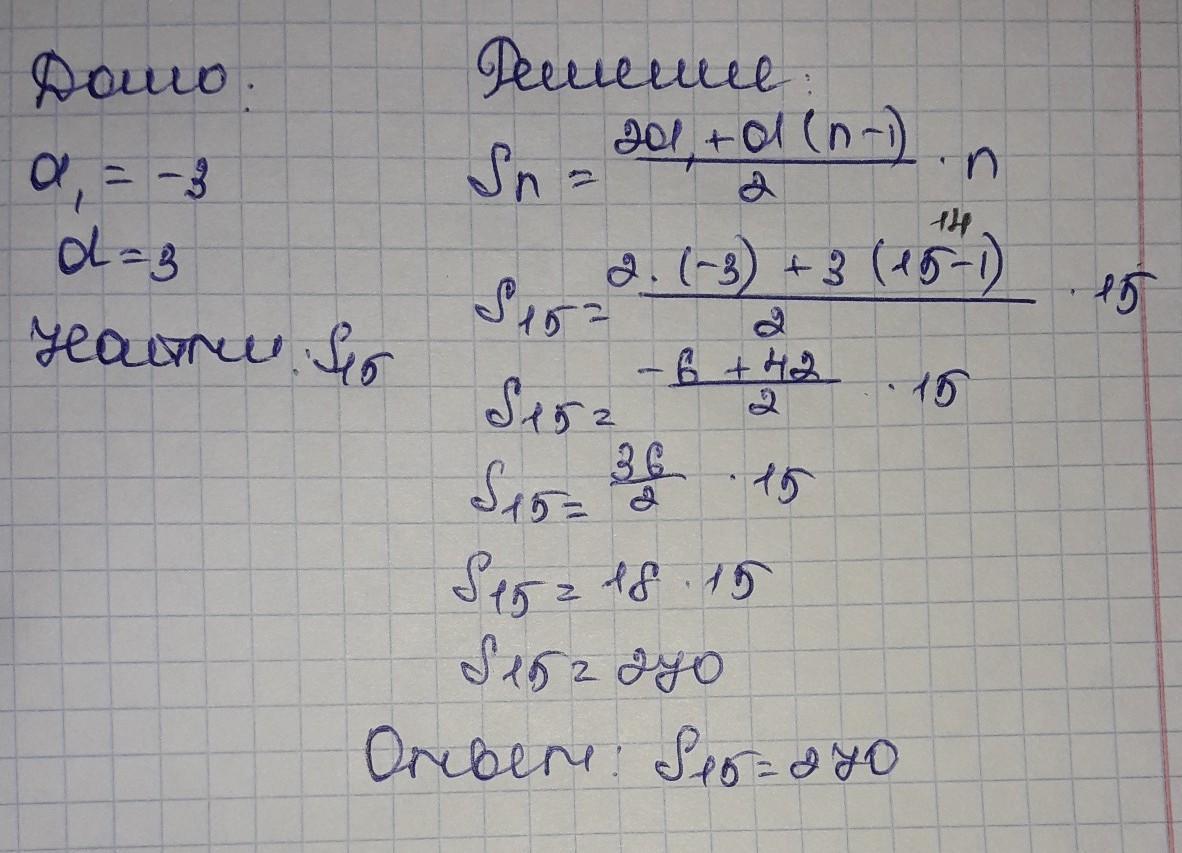 Дано:
a₁ = -3
d = 3
Найти: S₁₅
Решение:
Sn = (2a₁ + d(n-1))/2 · n
14
S₁₅ = (2·(-3) + 3(15-1))/2 · 15
S₁₅ = (-6 + 42)/2 · 15
S₁₅ = 36/2 · 15
S₁₅ = 18 · 15
S₁₅ = 270
Ответ: S₁₅ = 270